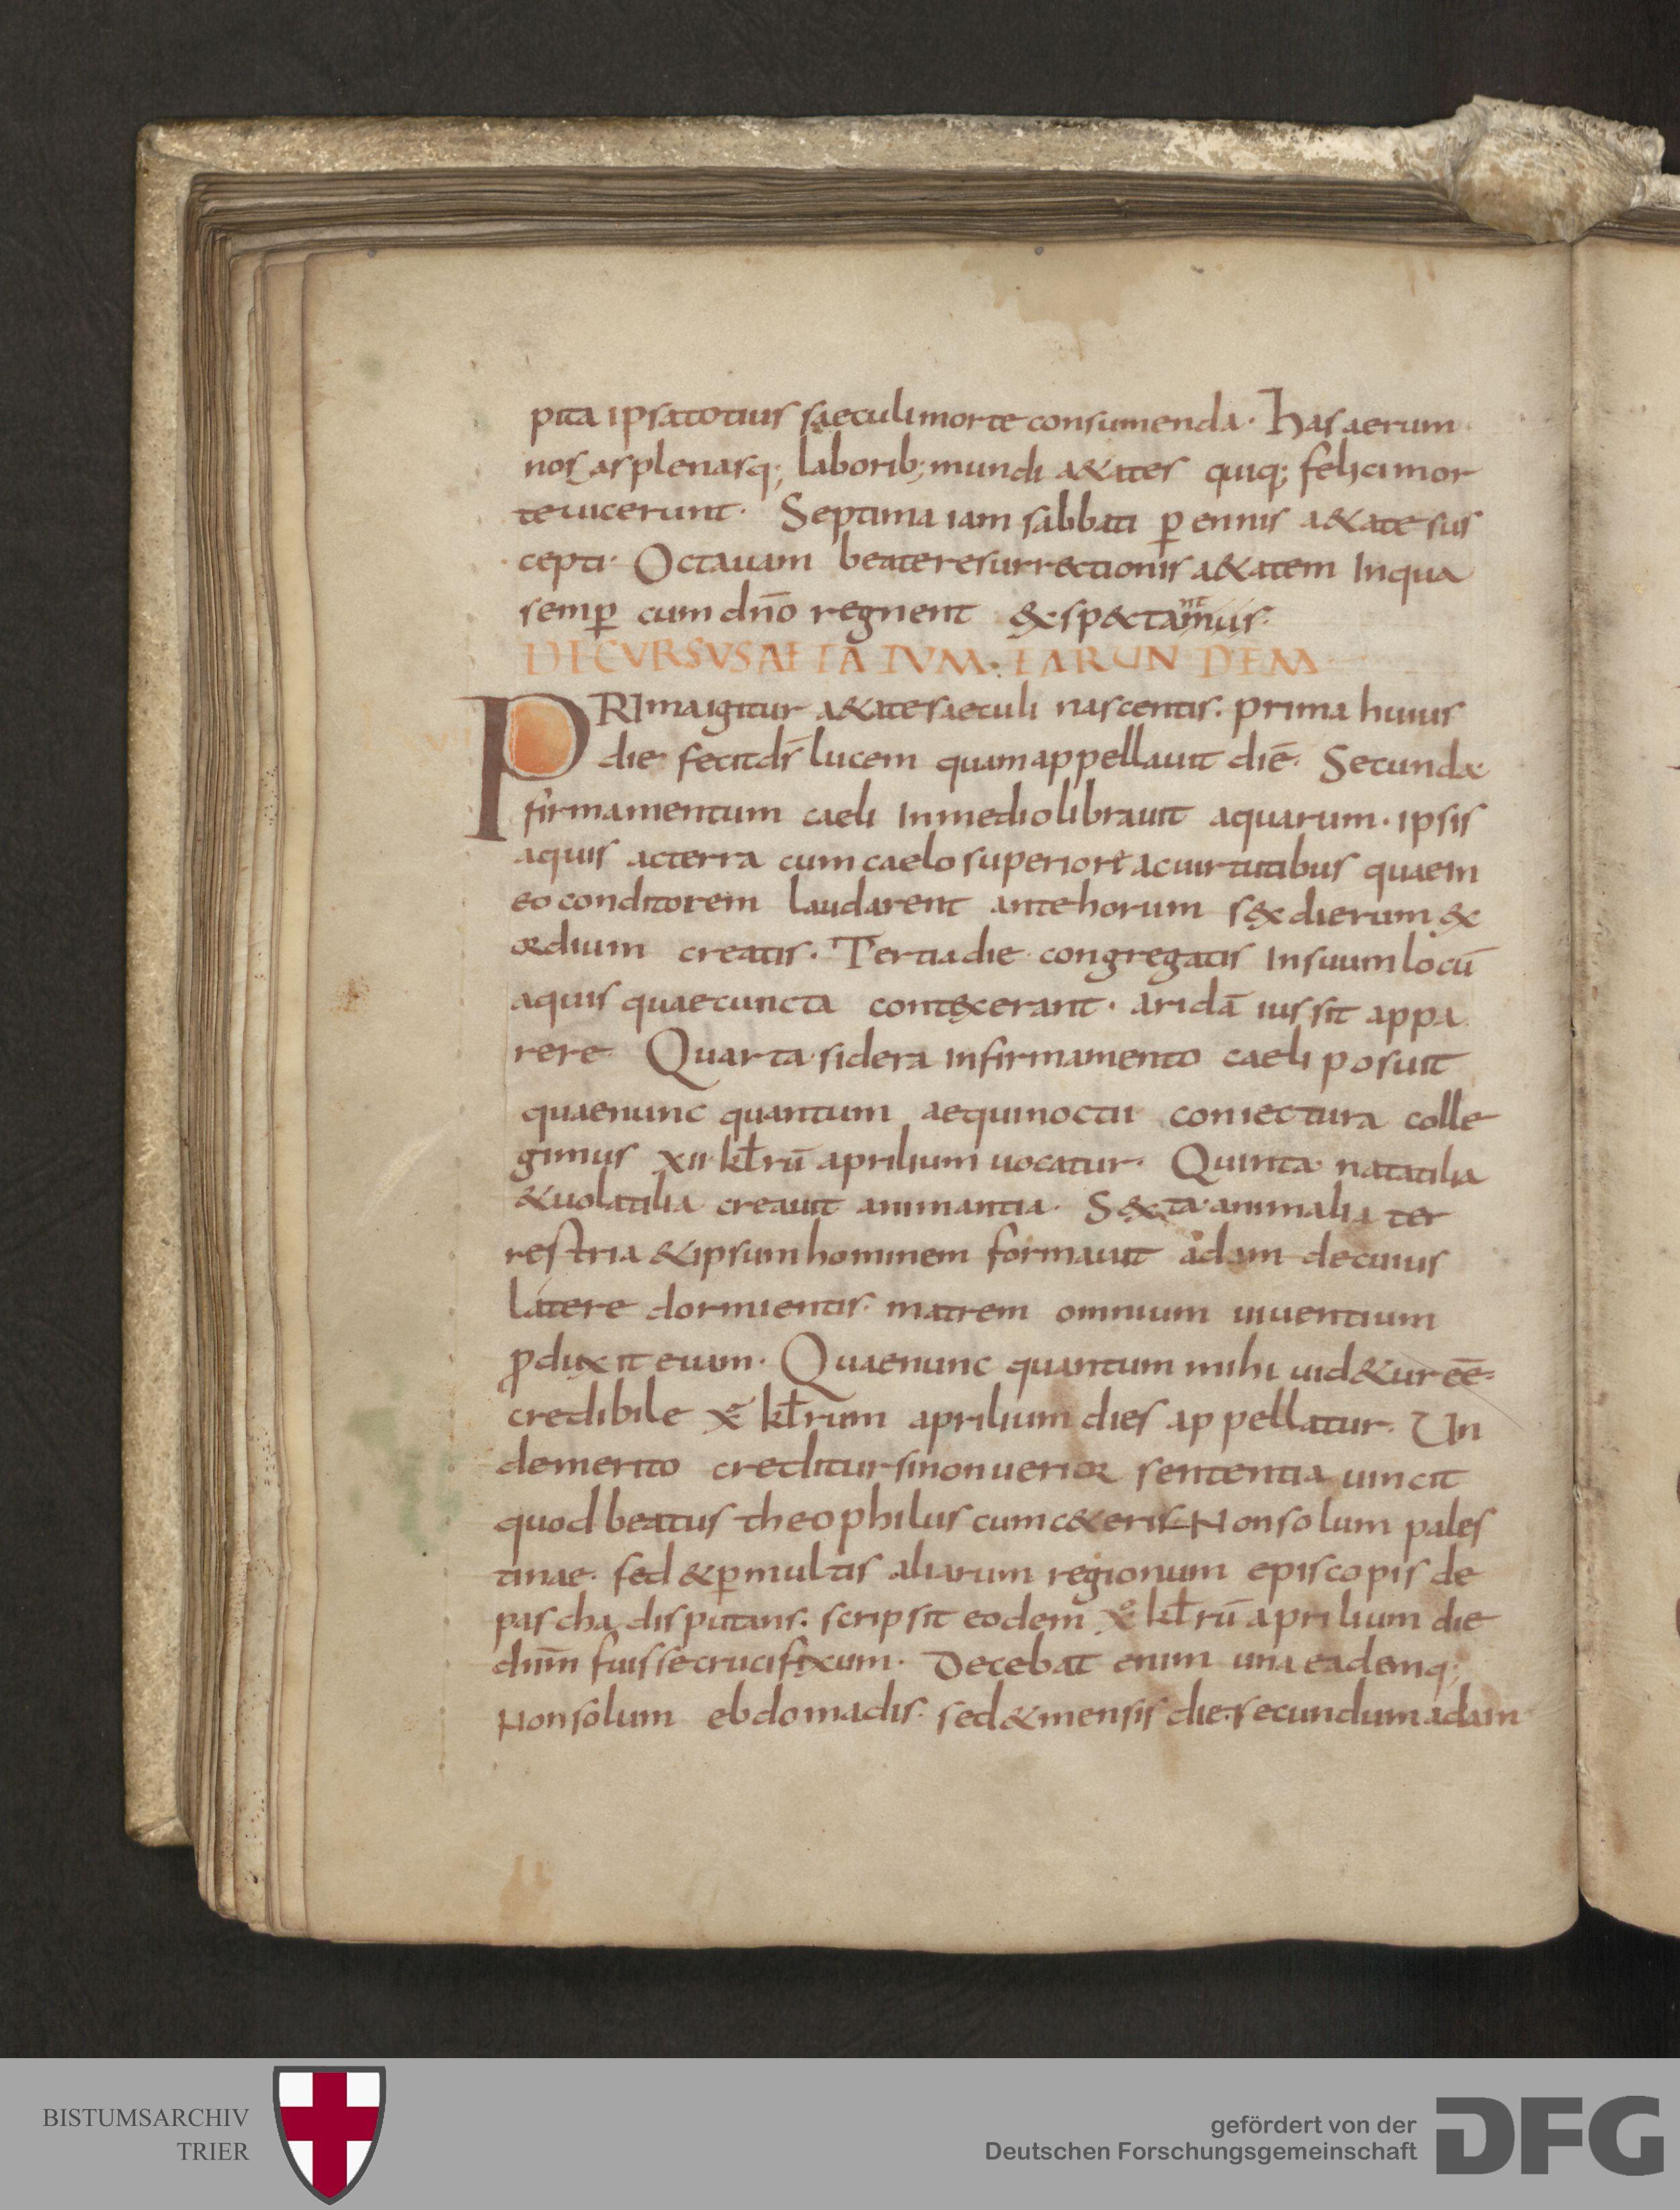 pita ipsa totius saeculi morte consumenda. Has aerum
nosas plenasq; laborib; mundi a&ates quiq; felici mor
te uicerunt. Septima iam sabbati ꝑennis a&ate sus
cepti. Octauam beate resurrectionis a&atem In qua
semꝑ cum dn̄o regnent &spectamus.
nt
DECURSUS AETATUM EARUNDEM
VI
PRIma igitur a&ate saeculi nascentis. prima huius
die fecit ds̄ lucem quam appellauit diē. Secunda
firmamentum caeli In medio librauit aquarum. ipsis
aquis ac terra cum caelo superiore ac uirtutibus quae in
eo conditorem laudarent ante horum sex dierum ex
ordium creatis. Tertia die congregatis In suum locū
aquis quae cuncta contexerant. aridā iussit appa
rere Quarta sidera In firmamento caeli posuit
quae nunc quantum aequinoctii coniectura colle
gimus xii kl̄rū aprilium uocatur. Quinta natatilia
&uolatilia creauit animantia. Sexta animalia ter
restria &ipsum hominem formauit adam de cuius
latere dormientis. matrem omnium uiuentium
ꝓduxit euam. Quae nunc quantum mihi uid&ur eē
credibile x kl̄rum aprilium dies appellatur. Un
de merito creditur si non uerior sententia uincit
quod beatus theophilus cum c&eris Non solum pales
tinae. sed &ꝑmultis aliarum regionum episcopis de
pascha disputans. scripsit eodem x kl̄rū aprilium die
dnm̄ fuisse crucifixum. Decebat enim una eademq;
Non solum ebdomadis. sed &mensis die. secundum adam
BISTUMSARCHIV
TRIER
gefördert von der
Deutschen Forschungsgemeinschaft
DFG